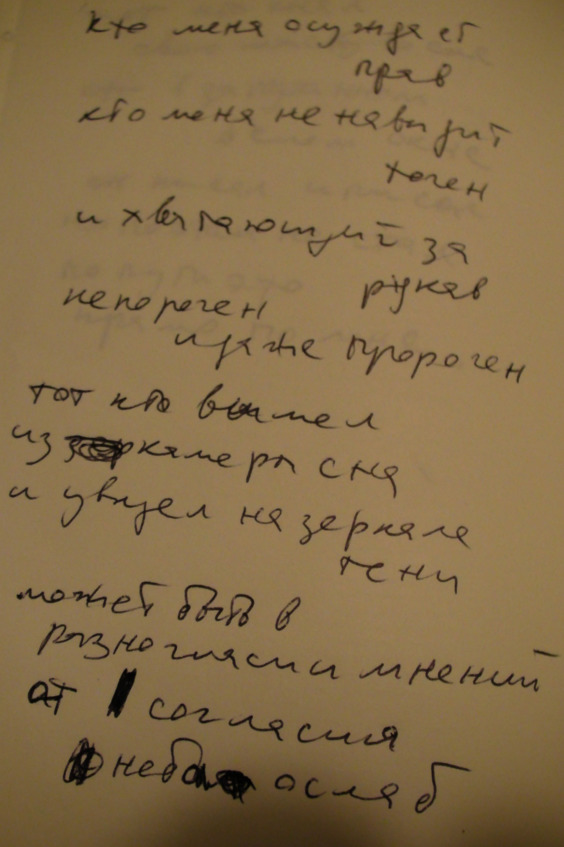 кто меня осуждает
прав
кто меня ненавидит
точен
и хватающий за
рукав
непорочен
и даже пророчен
тот кто вышел
из камеры сна
и увидел на зеркале
тени
может быть в
разногласии мнений
от согласия
ослаб